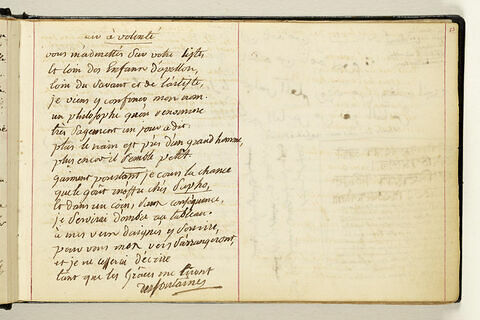 air à volonté
vous madmettés Sur votre liste,
Et loin des Enfans d'apollon,
loin du Savant et de l'artiste,
je viens y confiner mon nom.
un philosophe qu'on renomme
très Sagement un jour a dit
plus le nain est près d'un grand homme,
plus encor il Semble petit.
gaiment pourtant je cours la chance
que le goût m'offre chés Sapho,
Et dans un coin, Sans conséquence,
je Servirai d'ombre au tableau.
à mes vers daignés y Sourire,
pour vous mon vers S'arrangeront,
et je ne cesserai d'écrire
tant que les Grâces me liront
Desfontaines